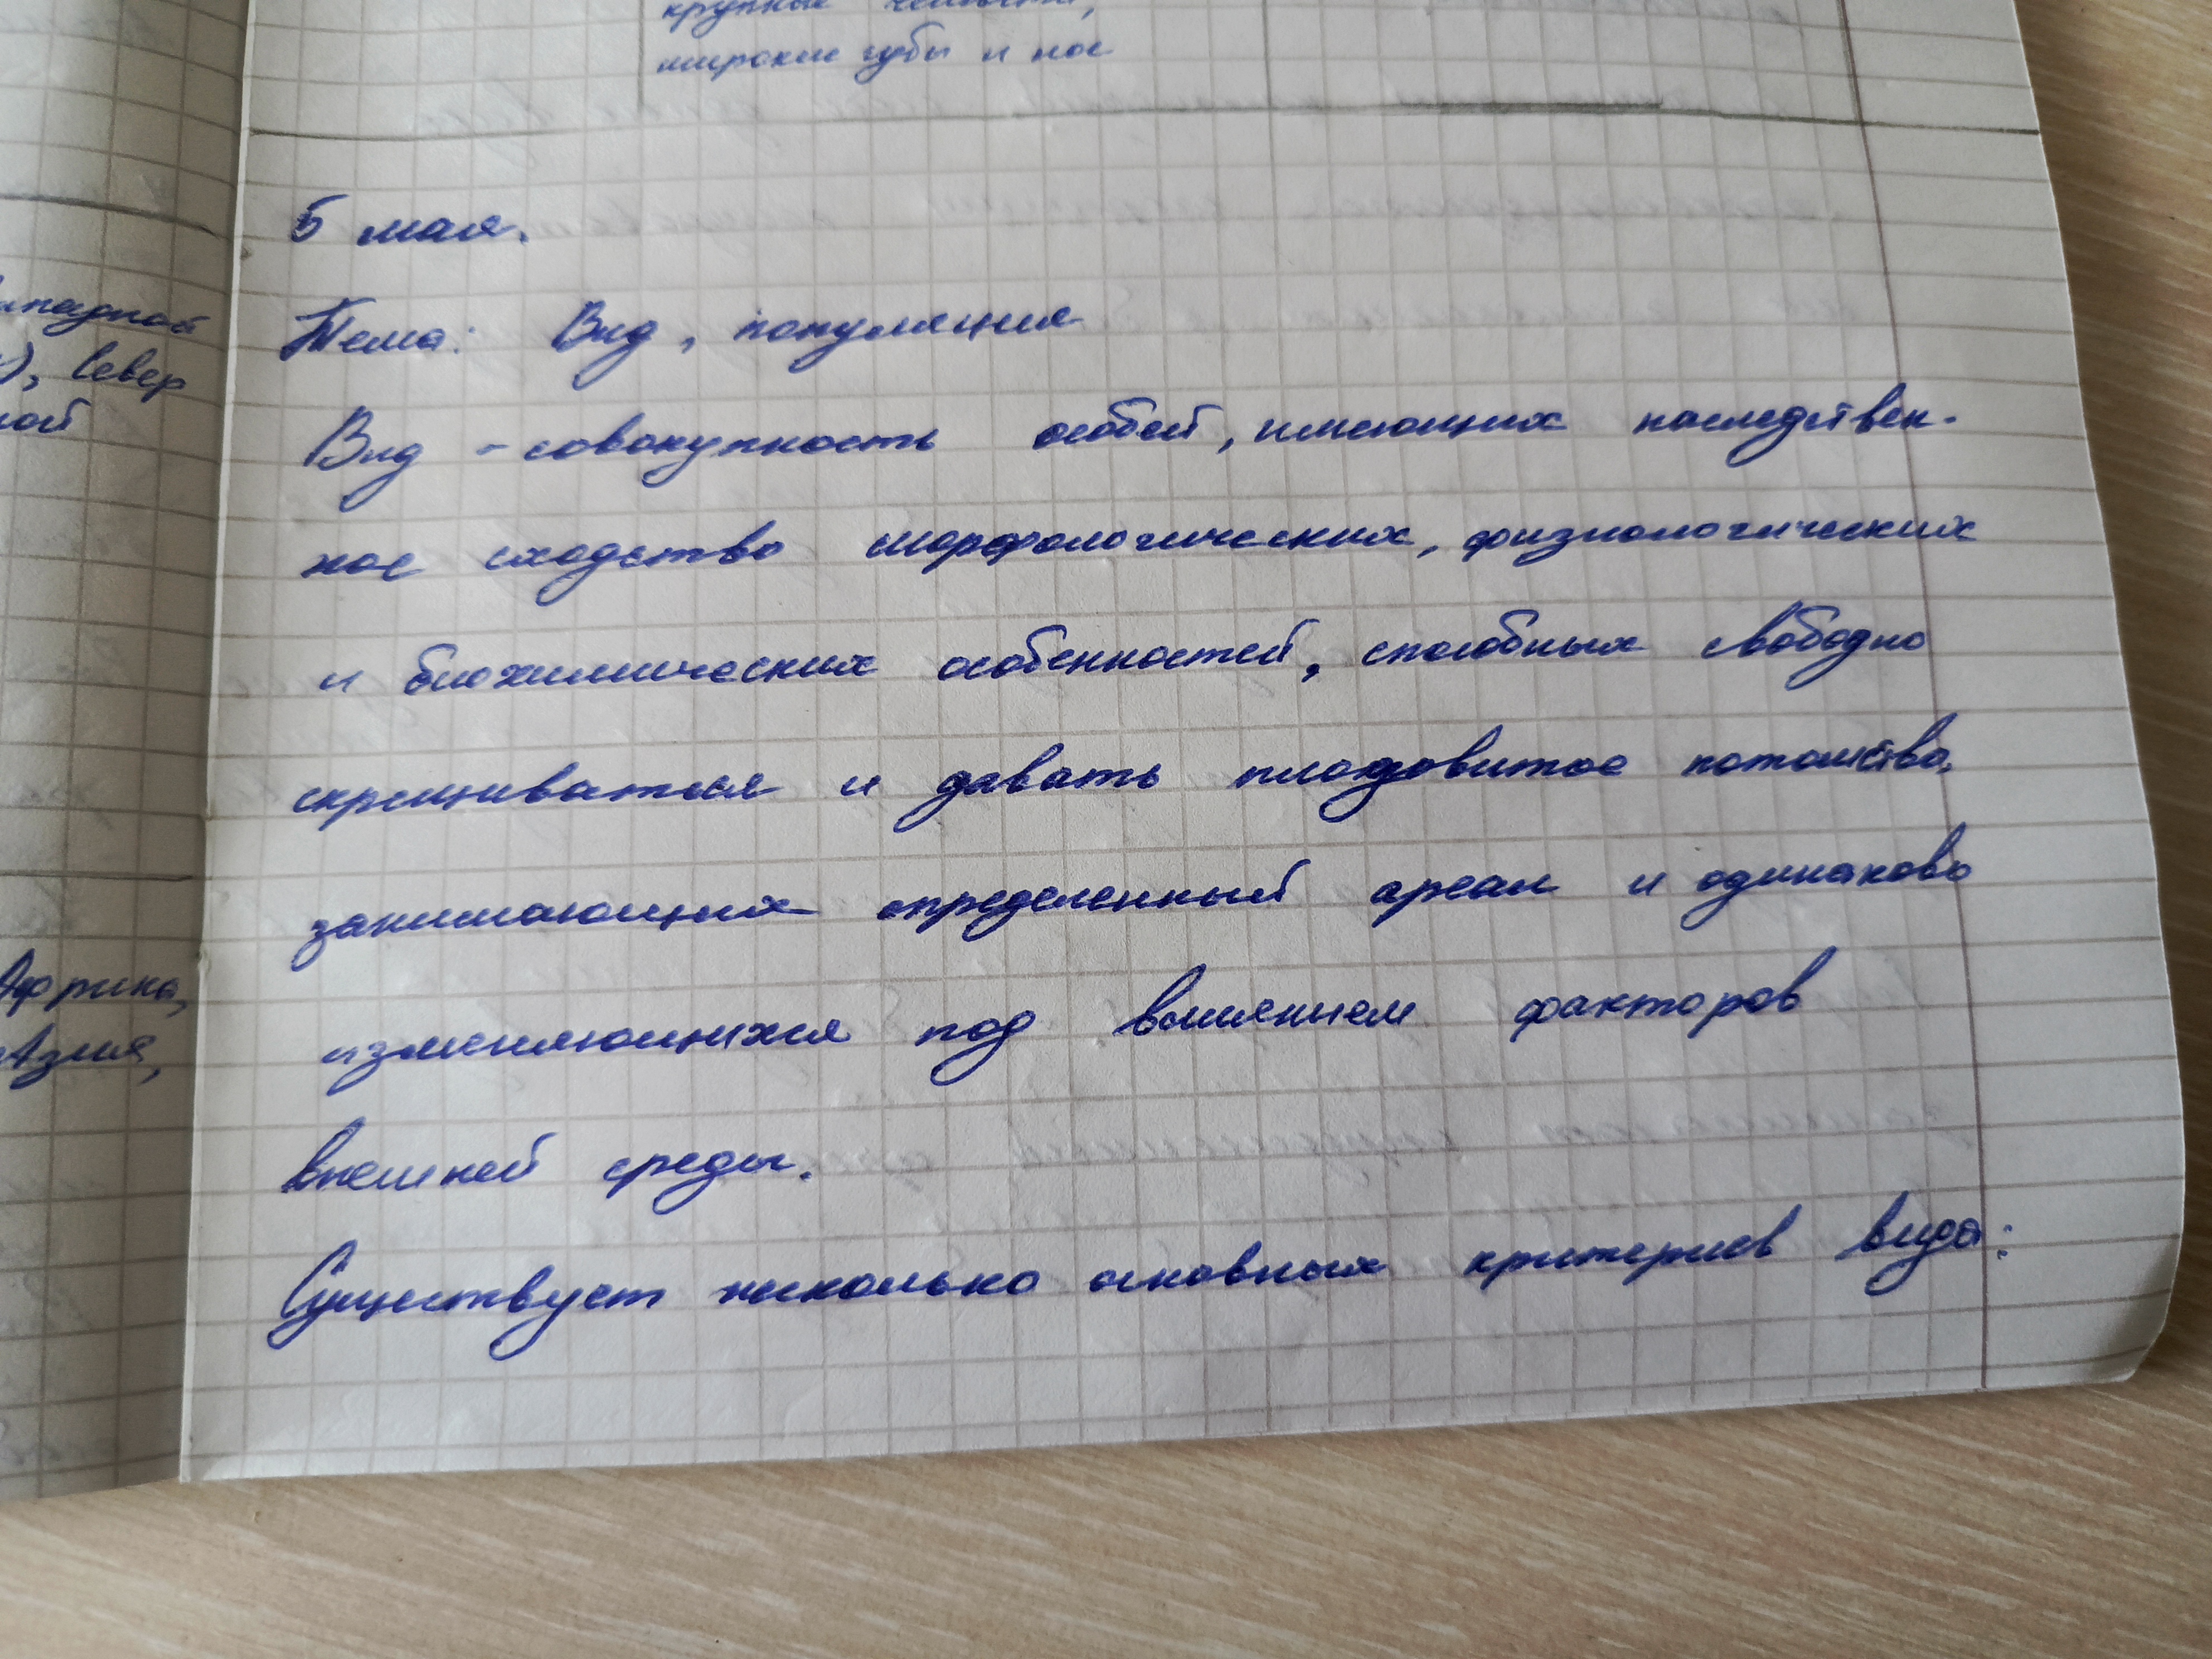 крупные челюсти,
широкие губы и нос
5 мая.
Тема: Вид, популяция
Вид - совокупность особей, имеющих наследствен-
ное сходство морфологических, физиологических
и биохимических особенностей, способных свободно
скрещиваться и давать плодовитое потомство,
занимающих определенный ареал и одинаково
изменяющихся под влиянием факторов
внешней среды.
Существует несколько основных критериев вида:
ападной
), Север
ной
Африка,
Азия,